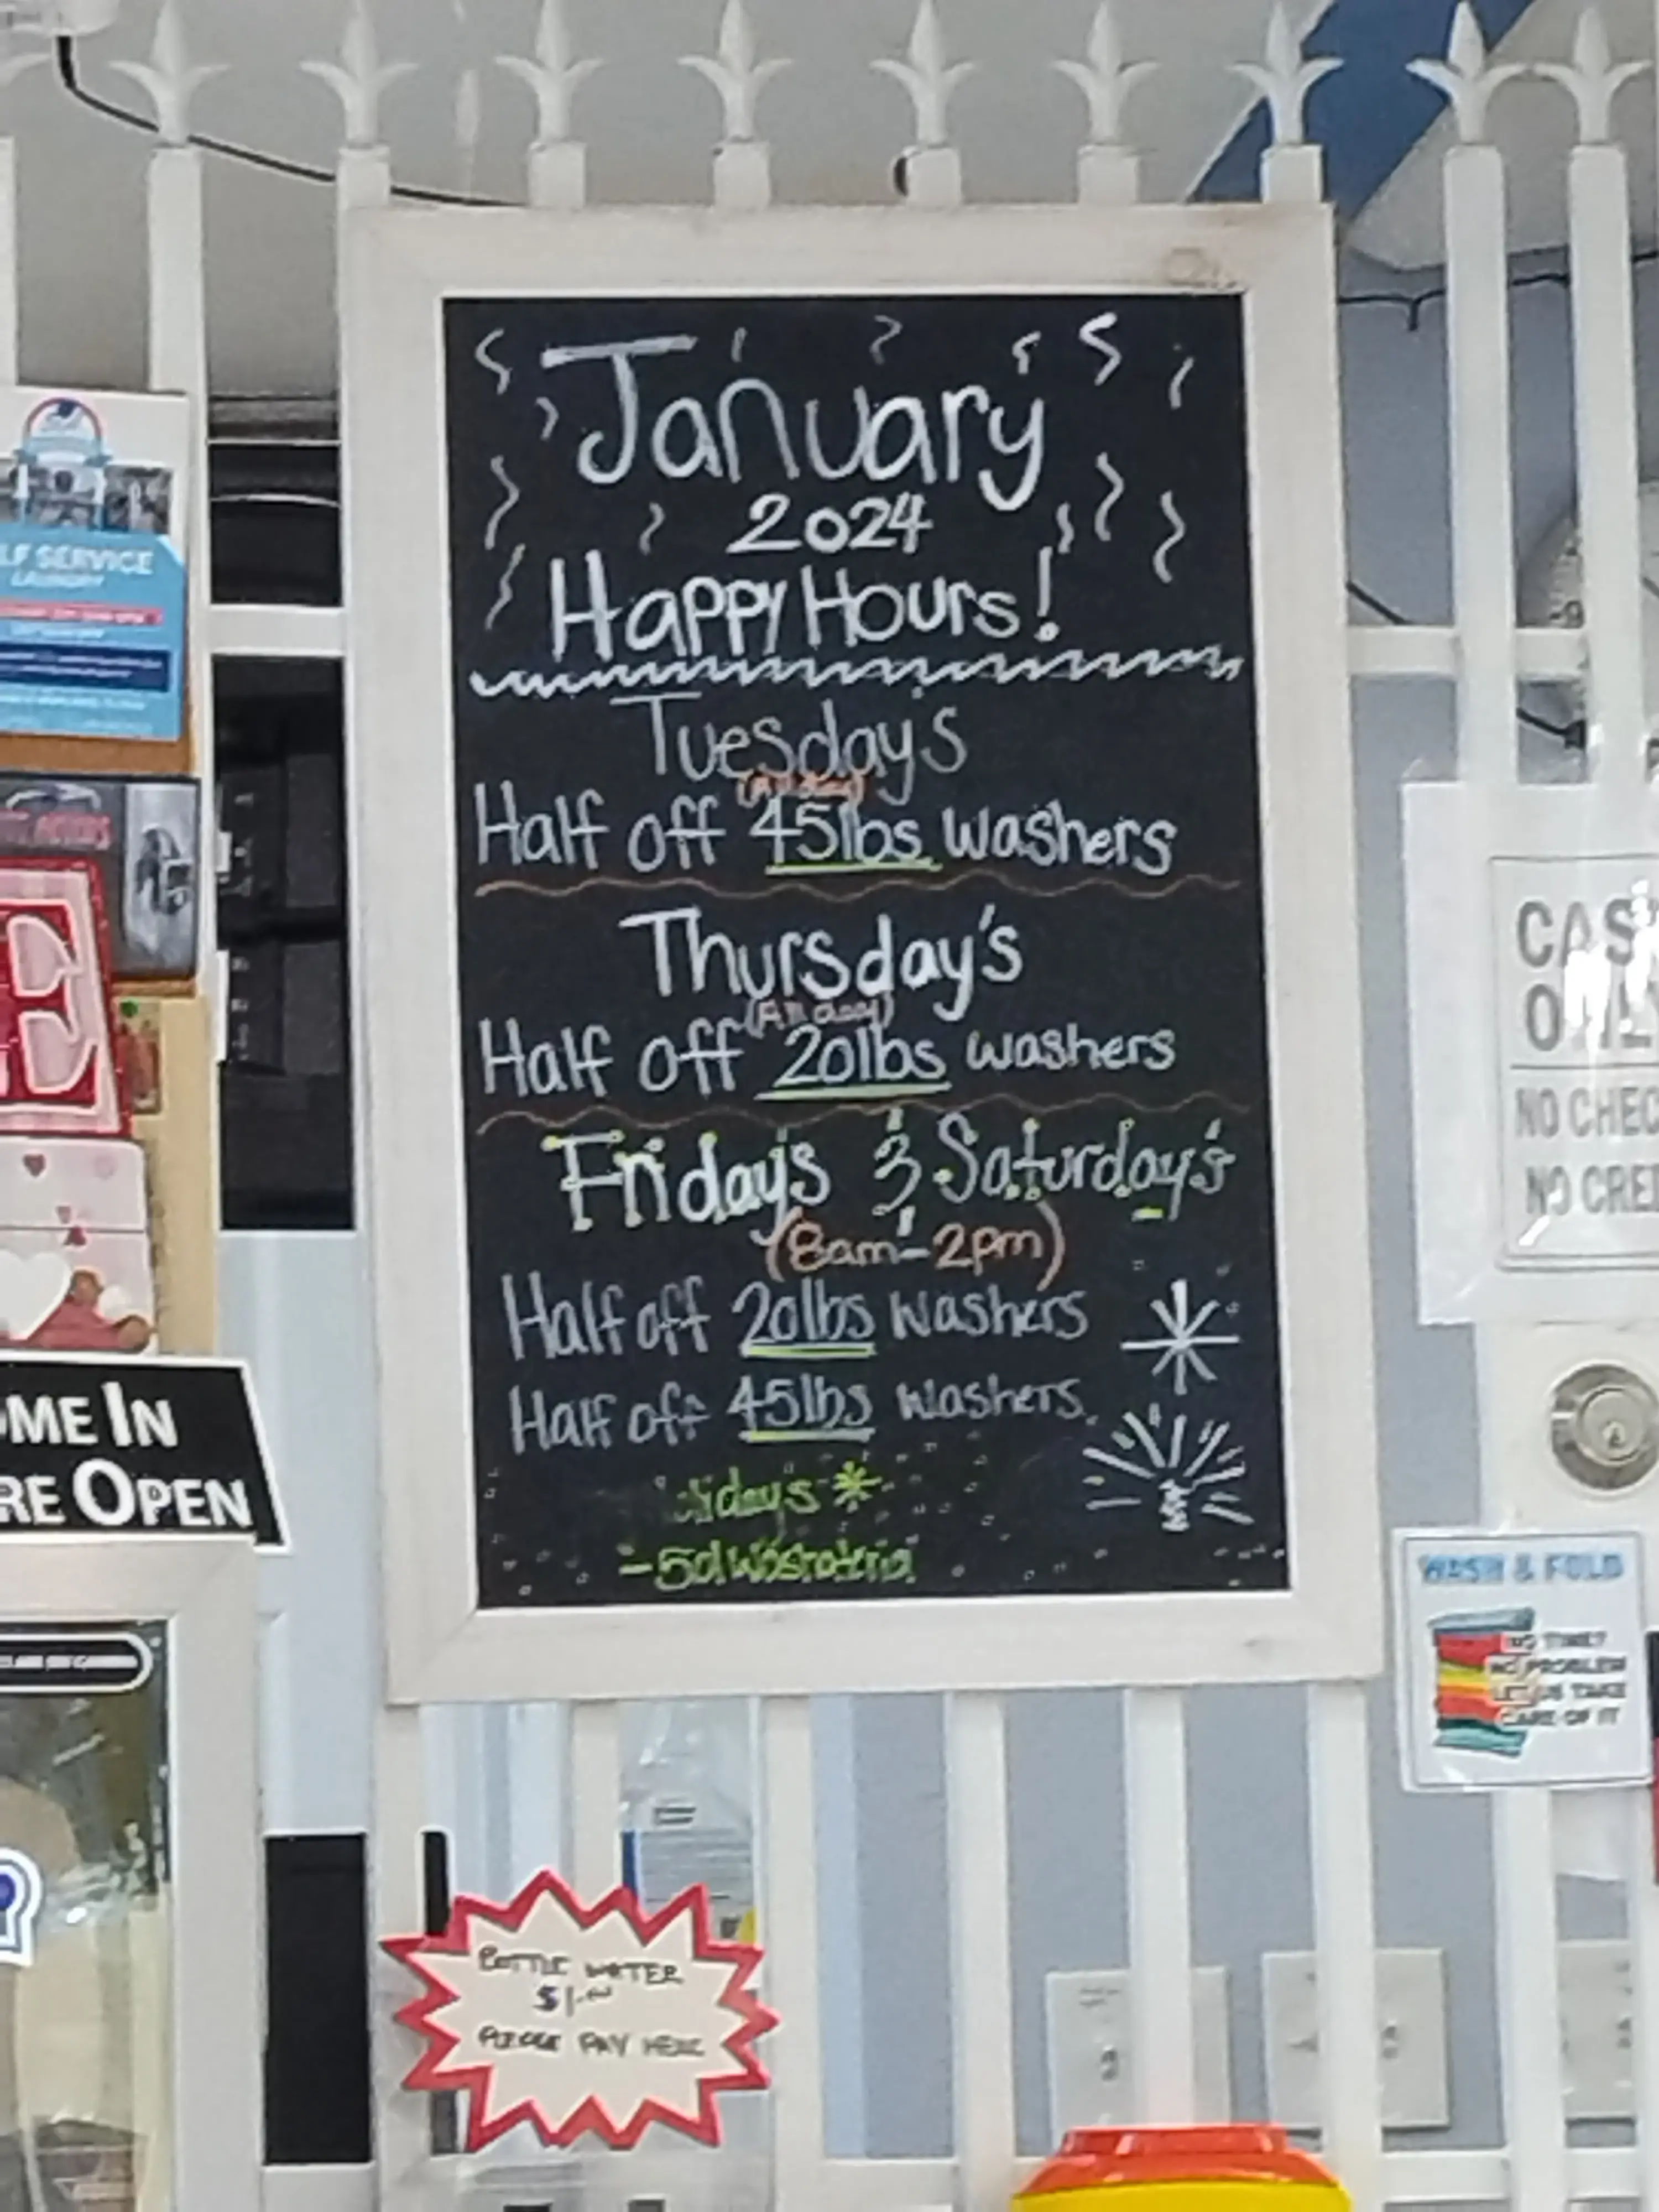 January
2024
Happy Hours!
Tuesday's
Half off 45lbs washers
Thursday's
(All day)
Half off 20lbs washers
Friday's & Saturday's
(8am-2pm)
Half off 20lbs washers
Half off 45lbs washers.
idays *
LF SERVICE
LAUNDRY
E
OME IN
RE OPEN
CAS
NO CHEC
NO CRE
WASH & FOLD
NO TIME?
NO PROBLEM
LET US TAKE
CARE OF IT
BOTTLE WATER
$1.00
PLEASE PAY HERE